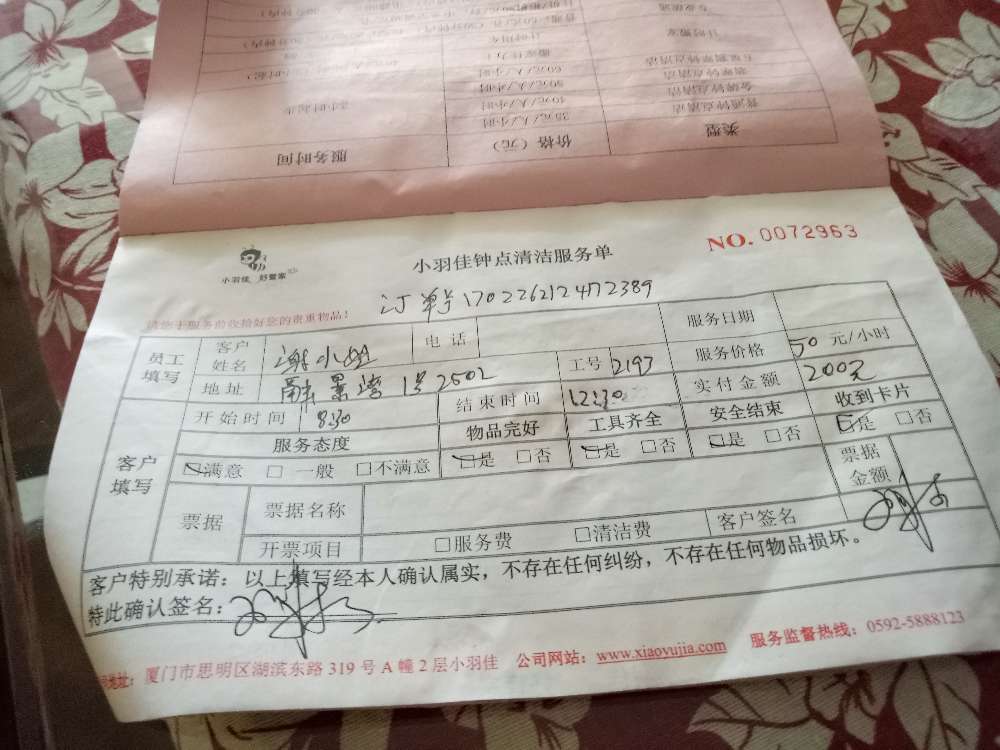 服务时间 价格（元） 类型
2小时起步 35元/人/小时 普通钟点清洁
40元/人/小时 金牌钟点清洁
50元/人/小时
60元/人/小时
计时搬家
小羽佳 好管家
小羽佳钟点清洁服务单
NO. 0072963
订单号 170226212472389
请您于服务前收拾好您的贵重物品！
员工填写 客户姓名 谢小姐 电话 服务日期
地址 融景湾 1号2502 工号 2197 服务价格 50 元/小时
客户填写 开始时间 8:30 结束时间 12:30 实付金额 200元
服务态度 物品完好 工具齐全 安全结束 收到卡片
☑满意 □一般 □不满意 ☑是 □否 ☑是 □否 ☑是 □否 ☑是 □否
票据 票据名称 票据金额
开票项目 □服务费 □清洁费 客户签名
客户特别承诺：以上填写经本人确认属实，不存在任何纠纷，不存在任何物品损坏。
特此确认签名：
地址：厦门市思明区湖滨东路 319 号 A 幢 2 层小羽佳 公司网站：www.xiaoyujia.com 服务监督热线：0592-5888123